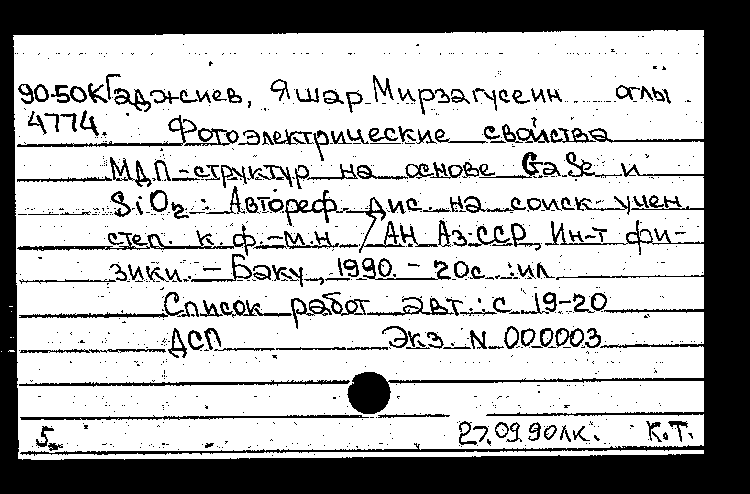 90-50К Гаджиев, Яшар Мирзагусеин оглы
4774. Фотоэлектрические свойства
МДП-структур на основе GaSe и
SiO₂ : Автореф. дис. на соиск. учен.
степ. к. ф.-м.н. / АН Аз.ССР, Ин-т фи-
зики. - Баку, 1990. - 20с. :ил.
Список работ авт.: с 19-20
ДСП Экз. N 000003
5. 27.09.90лк. К.Т.